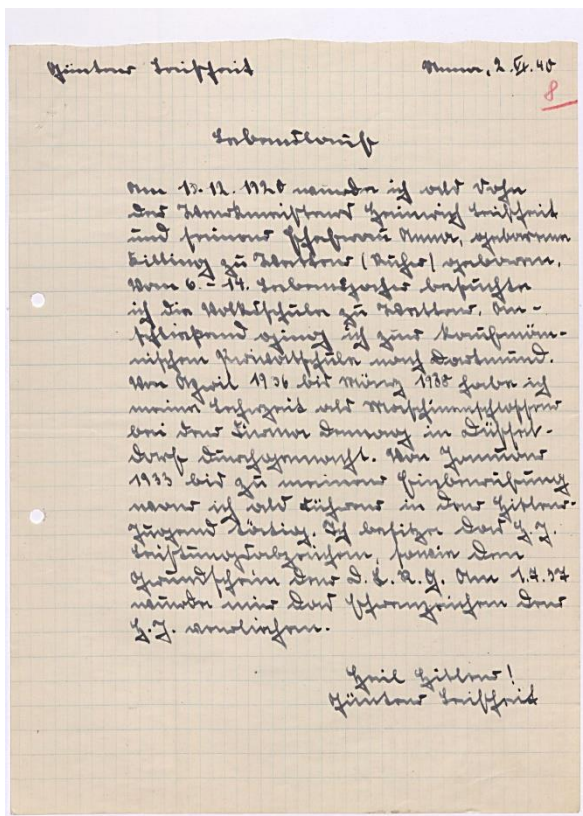 Günter Leischeit Unna, 2.XI.40
8
Lebenslauf
Am 13.12.1920 wurde ich als Sohn
des Werkmeisters Heinrich Leischeit
und seiner Ehefrau Anna, geborene
Killing zu Wetter (Ruhr) geboren.
Vom 6.-14. Lebensjahre besuchte
ich die Volksschule zu Wetter. An-
schließend ging ich zur kaufmän-
nischen Privatschule nach Dortmund.
Von April 1936 bis März 1938 habe ich
meine Lehrzeit als Maschinenschlosser
bei der Firma Demag in Düssel-
dorf durchgemacht. Von Januar
1933 bis zu meiner Einberufung
war ich als Führer in der Hitler-
Jugend tätig. Ich besitze das H.J.
Leistungsabzeichen, sowie den
Grundschein der D.L.R.G. Am 1.7.37
wurde mir das Ehrenzeichen der
H.J. verliehen.
Heil Hitler!
Günter Leischeit